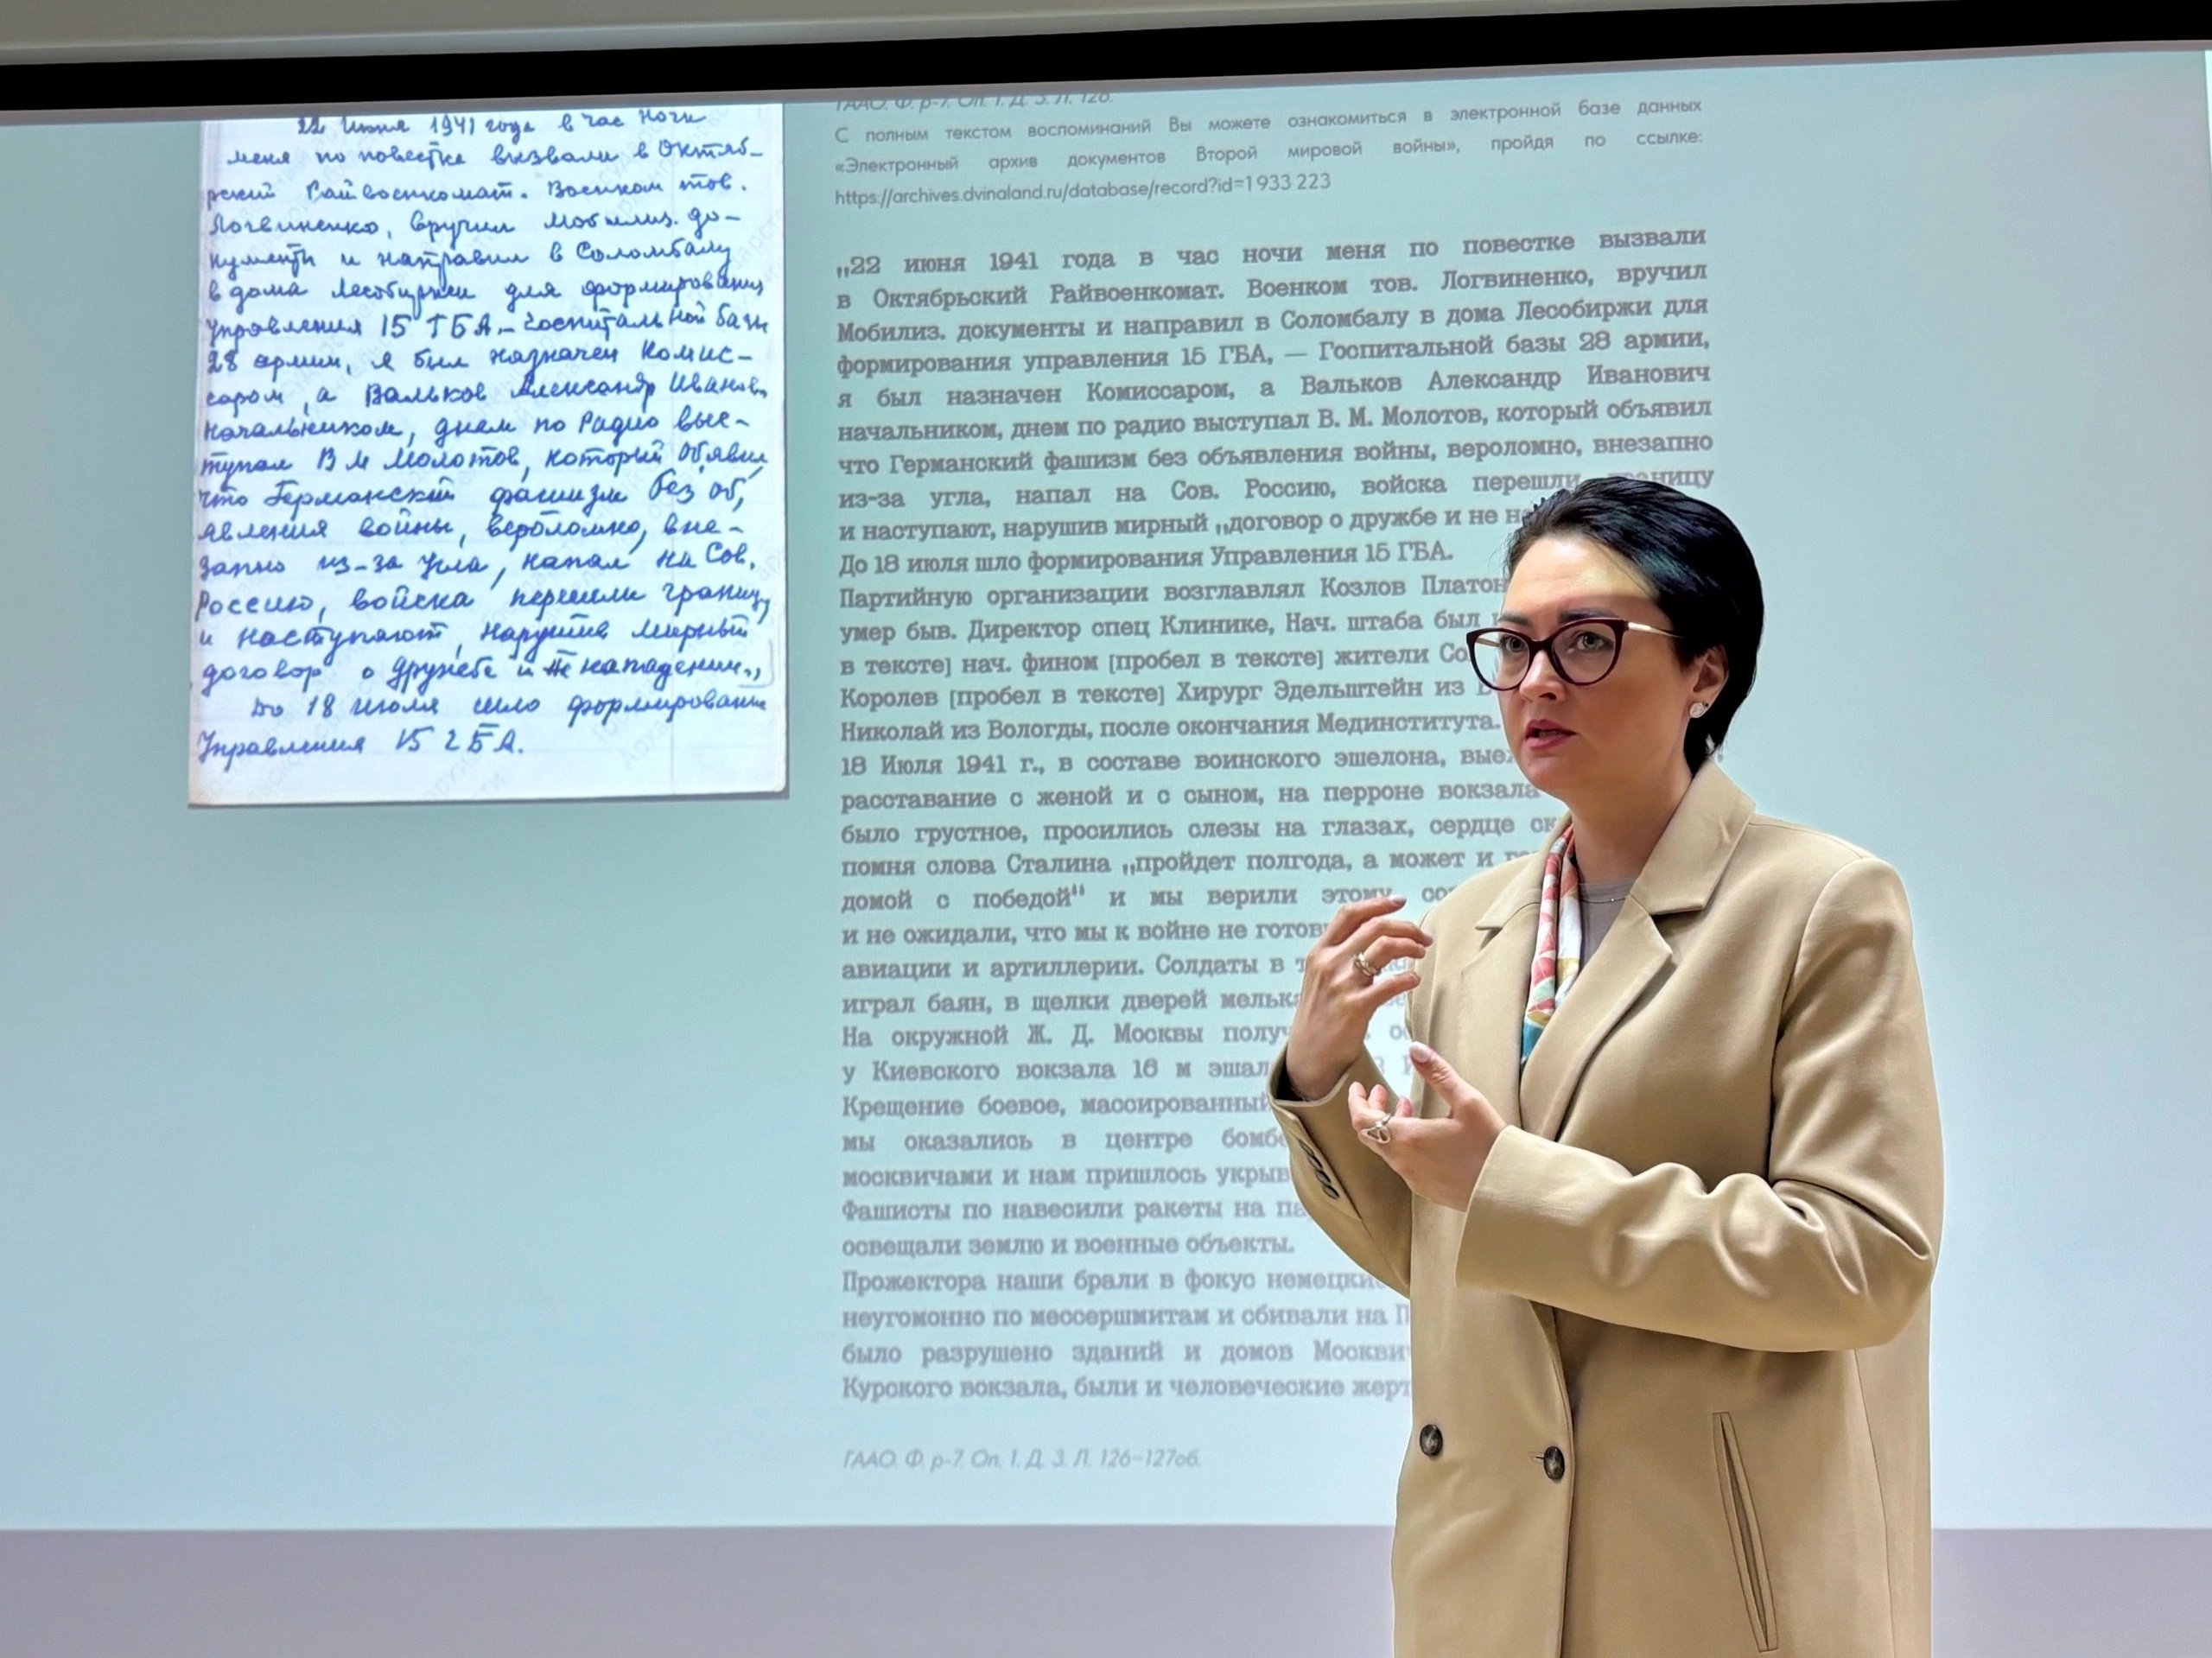 22 Июня 1941 года в час ночи
меня по повестке вызвали в Октяб-
рский Райвоенкомат. Военком тов.
Логвиненко, вручил мобилиз. до-
кументы и направил в Соломбалу
в дома Лесобиржи для формирования
Управления 15 ГБА – госпитальной базы
28 армии, я был назначен Комис-
саром, а Вальков Александр Иванов.
начальником, днем по Радио выс-
тупал В М Молотов, который объявил
что Германский фашизм без об,
явления войны, вероломно, вне-
запно из-за угла, напал на Сов.
Россию, войска перешли границу
и наступают, нарушив мирный
договор о дружбе и не нападении„
До 18 июля шло формирование
Управления 15 ГБА.
ГААО. Ф. р-7. Оп. 1. Д. 3. Л. 126.
С полным текстом воспоминаний Вы можете ознакомиться в электронной базе данных
«Электронный архив документов Второй мировой войны», пройдя по ссылке:
https://archives.dvinaland.ru/database/record?id=1933223
„22 июня 1941 года в час ночи меня по повестке вызвали
в Октябрьский Райвоенкомат. Военком тов. Логвиненко, вручил
Мобилиз. документы и направил в Соломбалу в дома Лесобиржи для
формирования управления 15 ГБА, — Госпитальной базы 28 армии,
я был назначен Комиссаром, а Вальков Александр Иванович
начальником, днем по радио выступал В. М. Молотов, который объявил
что Германский фашизм без объявления войны, вероломно, внезапно
из-за угла, напал на Сов. Россию, войска перешли границу
и наступают, нарушив мирный „договор о дружбе и не
До 18 июля шло формирования Управления 15 ГБА.
Партийную организации возглавлял Козлов Платон
умер быв. Директор спец Клинике, Нач. штаба был
в тексте] нач. фином [пробел в тексте] жители
Королев [пробел в тексте] Хирург Эдельштейн из
Николай из Вологды, после окончания Мединститута.
18 Июля 1941 г., в составе воинского эшелона,
расставание с женой и с сыном, на перроне вокзала
было грустное, просились слезы на глазах, сердце
помня слова Сталина „пройдет полгода, а может и
домой с победой" и мы верили этому,
и не ожидали, что мы к войне не
авиации и артиллерии. Солдаты в
играл баян, в щелки дверей
На окружной Ж. Д. Москвы
у Киевского вокзала 16 м
Крещение боевое, массированный
мы оказались в центре
москвичами и нам пришлось
Фашисты по навесили ракеты на
освещали землю и военные объекты.
Прожектора наши брали в фокус
неугомонно по мессершмитам и сбивали на
было разрушено зданий и домов
Курского вокзала, были и человеческие
ГААО. Ф. р-7. Оп. 1. Д. 3. Л. 126–127об.